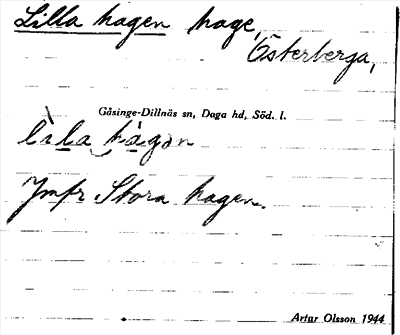 Lilla hagen hage,
Österberga,
Gåsinge-Dillnäs sn, Daga hd, Söd. l.
lìla hàgan
Jmfr Stora hagen.
Artur Olsson 1944